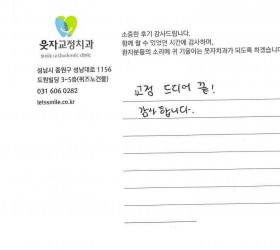 웃자교정치과
smile orthodontic clinic
성남시 중원구 성남대로 1156
도원빌딩 3~5층(퀴즈노건물)
031 606 0282
letssmile.co.kr
소중한 후기 감사드립니다.
함께 할 수 있었던 시간에 감사하며,
환자분들의 소리에 귀 기울이는 웃자치과가 되도록 하겠습니
교정 드디어 끝!
감사합니다.